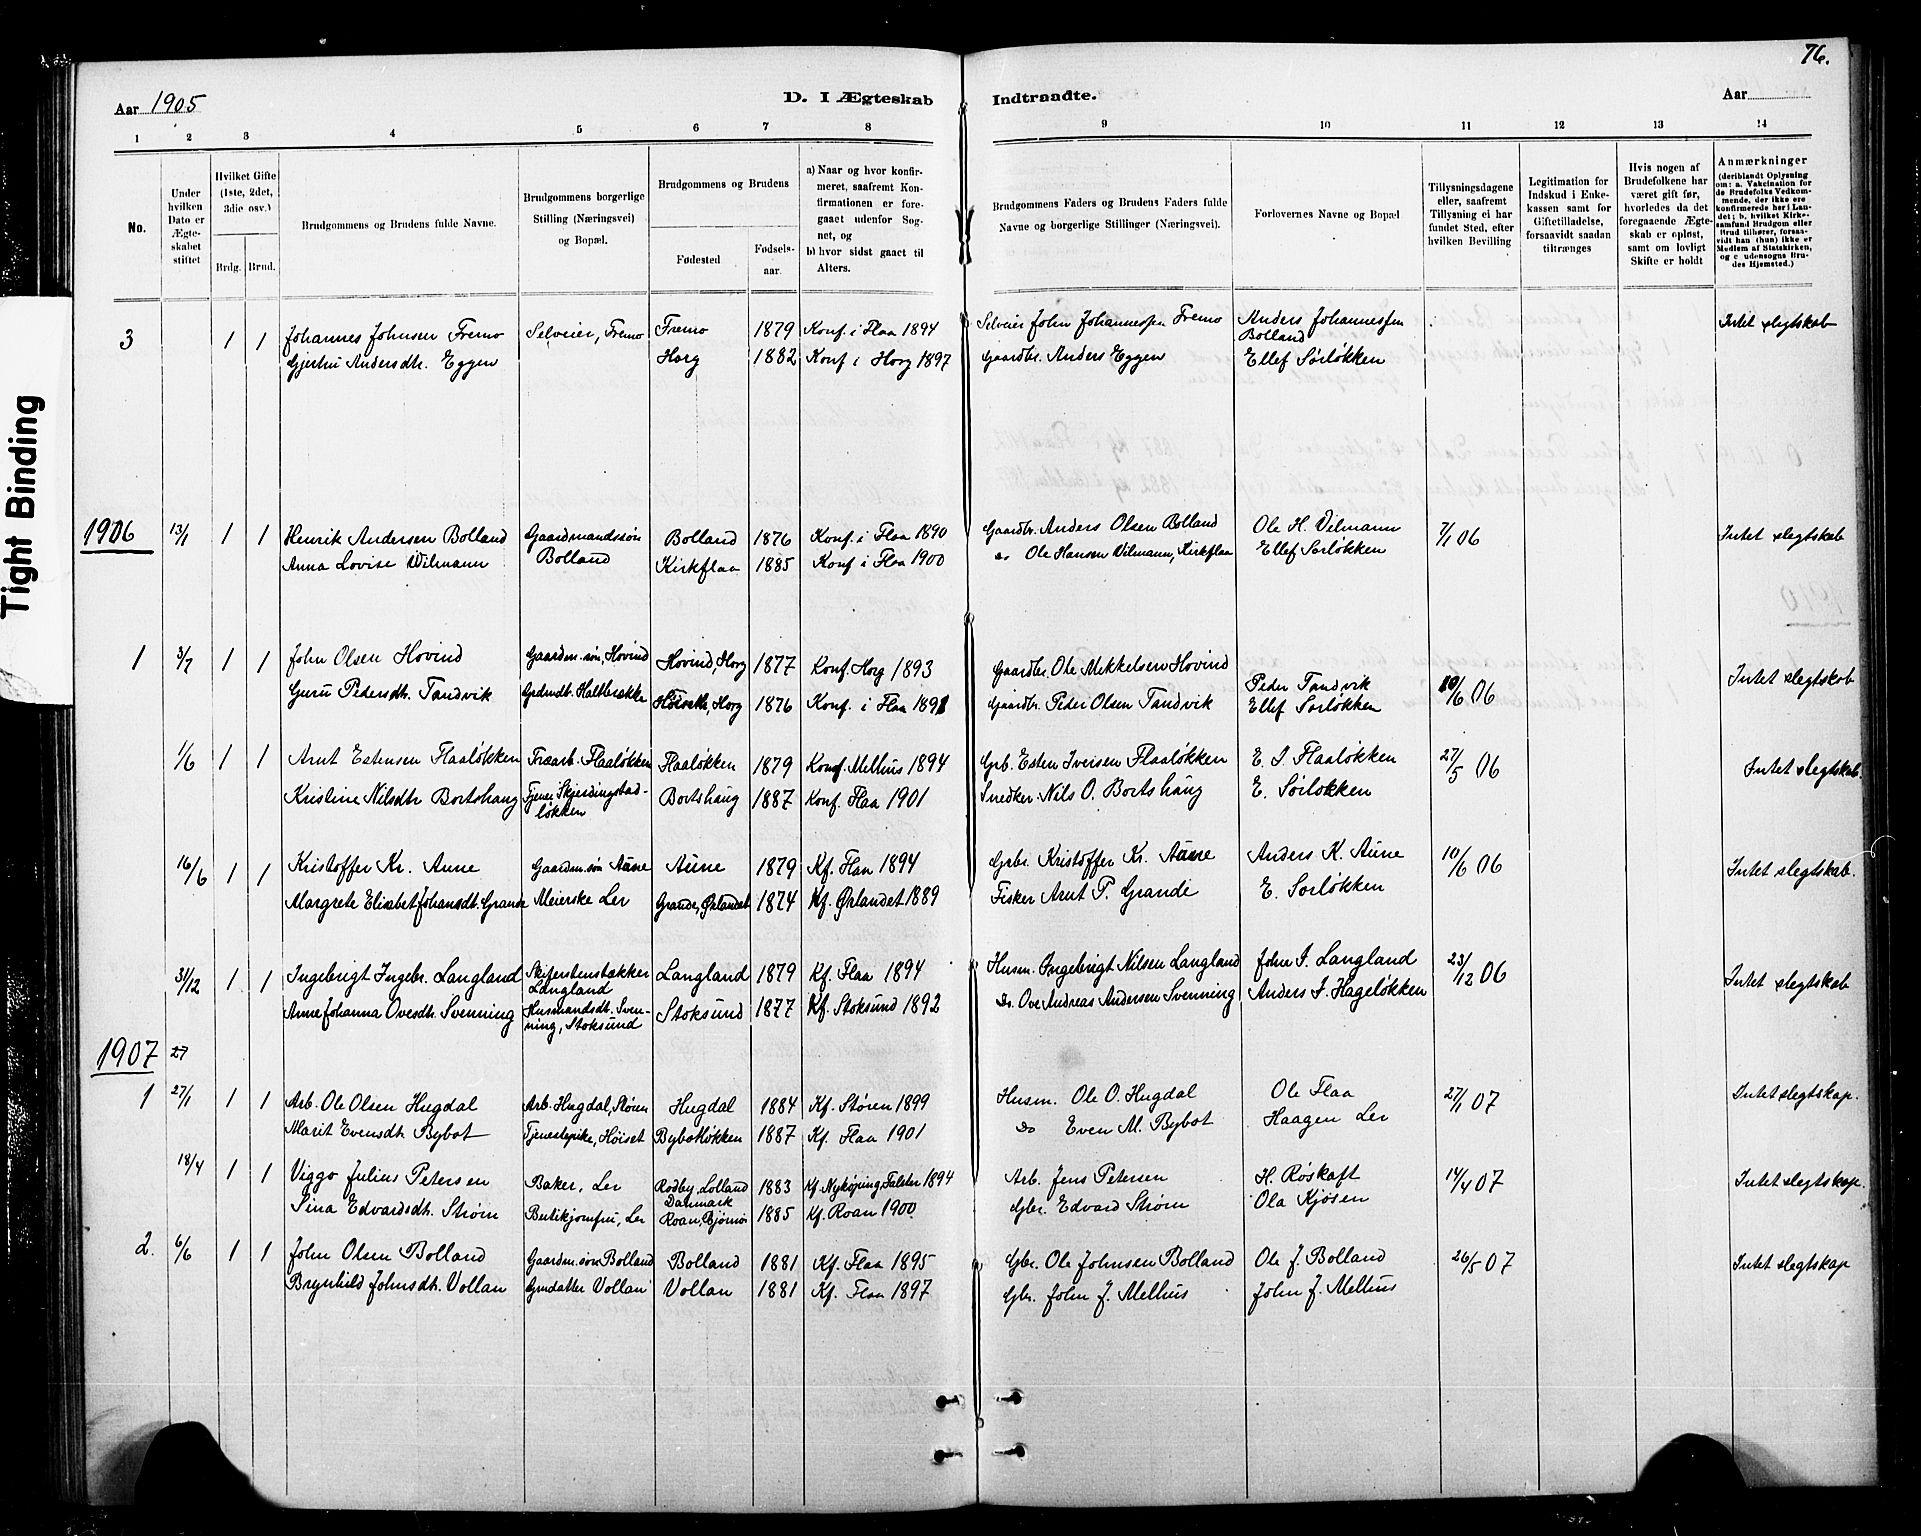 76.
Aar 1905
D. I Ægteskab Indtraadte.
Aar
1 2 3 4 5 6 7 8 9 10 11 12 13 14
No.
Under hvilken Dato er Ægteskabet stiftet
Hvilket Gifte (1ste, 2det, 3die osv.)
Brdg. Brud.
Brudgommens og Brudens fulde Navne.
Brudgommens borgerlige Stilling (Næringsvei) og Bopæl.
Brudgommens og Brudens
Fødested
Fødsels-aar.
a) Naar og hvor konfirmeret, saafremt Konfirmationen er foregaaet udenfor Sognet, og
b) hvor sidst gaaet til Alters.
Brudgommens Faders og Brudens Faders fulde Navne og borgerlige Stillinger (Næringsvei).
Forlovernes Navne og Bopæl
Tillysningsdagene eller, saafremt Tillysning ei har fundet Sted, efter hvilken Bevilling
Legitimation for Indskud i Enkekassen samt for Giftetilladelse, forsaavidt saadan tiltrænges
Hvis nogen af Brudefolkene har været gift før, hvorledes da det foregaaende Ægteskab er opløst, samt om lovligt Skifte er holdt
Anmærkninger
(deriblandt Oplysning om: a. Vakcination for de Brudefolks Vedkommende, der ikke ere konfirmerede her i Landet; b. hvilket Kirkesamfund Brudgom eller Brud tilhører, forsaavidt han (hun) ikke er Medlem af Statskirken, og c. udensogns Brudes Hjemsted.)
Tight Binding
3 1 1 Johannes Johnsen Fremo Selveier, Fremo Fremo 1879 Konf. i Flaa 1894 Selveier John Johannessen Fremo Anders Johannessen Bolland Intet slegtskab
Gjertru Andersdtr. Eggen Horg 1882 Konf. i Horg 1897 Gaardbr. Anders Eggen Ellef Sørløkken
1906 13/1 1 1 Henrik Andersen Bolland Gaardmandssøn Bolland Bolland 1876 Konf. i Flaa 1890 Gaardbr. Anders Olsen Bolland Ole H. Vilmann 7/1 06 Intet slegtskab
Anna Lovise Vilmann Kirkflaa 1885 Konf i Flaa 1900 do Ole Hansen Vilmann, Kirkflaa Ellef Sørløkken
1 3/7 1 1 John Olsen Hovind Gaardm. søn, Hovind Hovind, Horg 1877 Konf. Horg 1893 Gaardbr. Ole Mikkelsen Hovind Peder Tandvik 10/6 06 Intet slegtskab
Guru Pedersdtr. Tandvik Horg 1876 Konf. i Flaa 1891 Gaardbr. Peder Olsen Tandvik Ellef Sørløkken
1/6 1 1 Arnt Estensen Flaaløkken Træarb. Flaaløkken Flaaløkken 1879 Konf Melhus 1894 Grb. Esten Iversen Flaaløkken E. I. Flaaløkken 27/5 06 Intet slegtskab.
Kristine Nilsdtr Bortshaug Tjener Skjerdingstadløkken Bortshaug 1887 Konf. Flaa 1901 Snedker. Nils O. Bortshaug E. Sørløkken
16/6 1 1 Kristoffer Kr. Aune Gaardm. søn Aune Aune 1879 Kf. Flaa 1894 Grbr. Kristoffer Kr. Aune Anders K. Aune 10/6 06 Intet slegtskab.
Margrete Elisabet Johansdt. Grande Meierske Ler Grande, Ørlandet 1874 Kf. Ørlandet 1889 Fisker Arnt P. Grande E. Sørløkken
31/12 1 1 Ingebrigt Ingebr. Langland Skiferstenstækker Langland Langland 1879 Kf. Flaa 1894 Husm. Ingebrigt Nilsen Langland John I. Langland 23/12 06 Intet slegtskab
Anne Johanna Ovesdtr. Svenning Husmandsdt. Svenning, Stoksund Stoksund 1877 Kf. Stoksund 1892 Do. Ove Andreas Andersen Svenning Anders J. Hageløkken
1907 27
1 27/1 1 1 Arb. Ole Olsen Hugdal Arb. Hugdal, Støren Hugdal 1884 Kf. Støren 1899 Husm. Ole O. Hugdal Ole Flaa 27/1 07 Intet slegtskap.
Marit Evensdtr Bybot Tjenestepike, Høiset Bybotløkken 1887 Kf. Flaa 1901 Do Even M. Bybot Haagen Ler
18/4 1 1 Viggo Julius Petersen Baker, Ler Rødby, Lolland Danmark 1883 Kf. Nykøjing, Falster 1894 Arb. Jens Petersen H. Røskaft 14/4 07 Intet slegtskap.
Sina Edvardsdtr. Strøm Butikjomfru, Ler Roan, Bjørnør 1885 Kf. Roan 1900. Gbr. Edvard Strøm Ola Kjøsen
2. 6/6 1 1 John Olsen Bolland Gaardm. søn Bolland Bolland 1881 Kf. Flaa 1895 Gbr. Ole Johnsen Bolland Ole J. Bolland 26/5 07 Intet slegtskap
Brynhild Johnsdtr. Vollan Gmdatter Vollan Vollan 1881 Kf. Flaa 1897 Gbr. John J. Melhus John J. Melhus